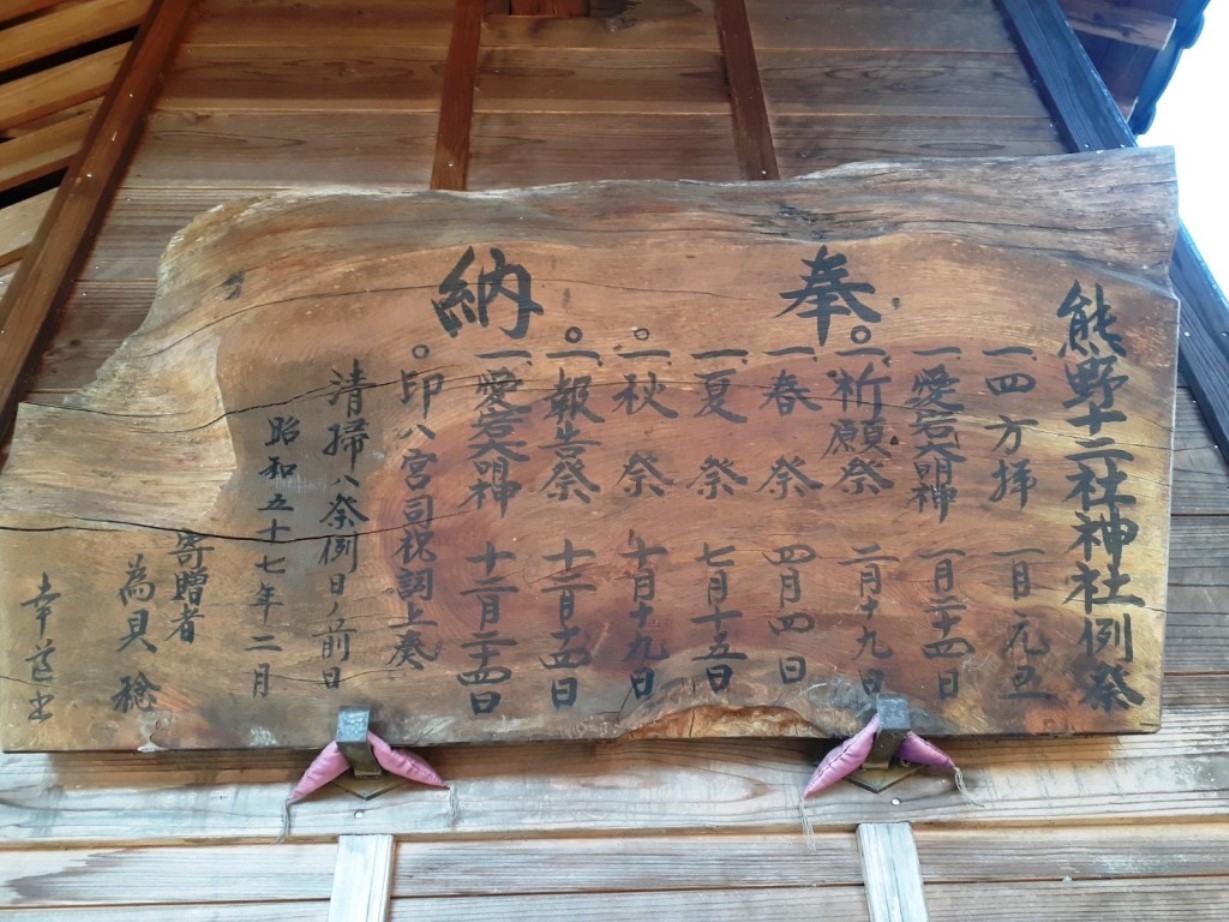 奉納
熊野十二社神社例祭
一、四方拝 一月元旦
一、愛宕大明神 一月二十四日
一、祈願祭 二月十九日
一、春祭 四月四日
一、夏祭 七月十五日
一、秋祭 十月十九日
一、報告祭 十二月十四日
一、愛宕大明神 十二月二十四日
○印ハ宮司祝詞上奏
清掃ハ祭例日ノ前日
昭和五十七年二月
寄贈者
為貝